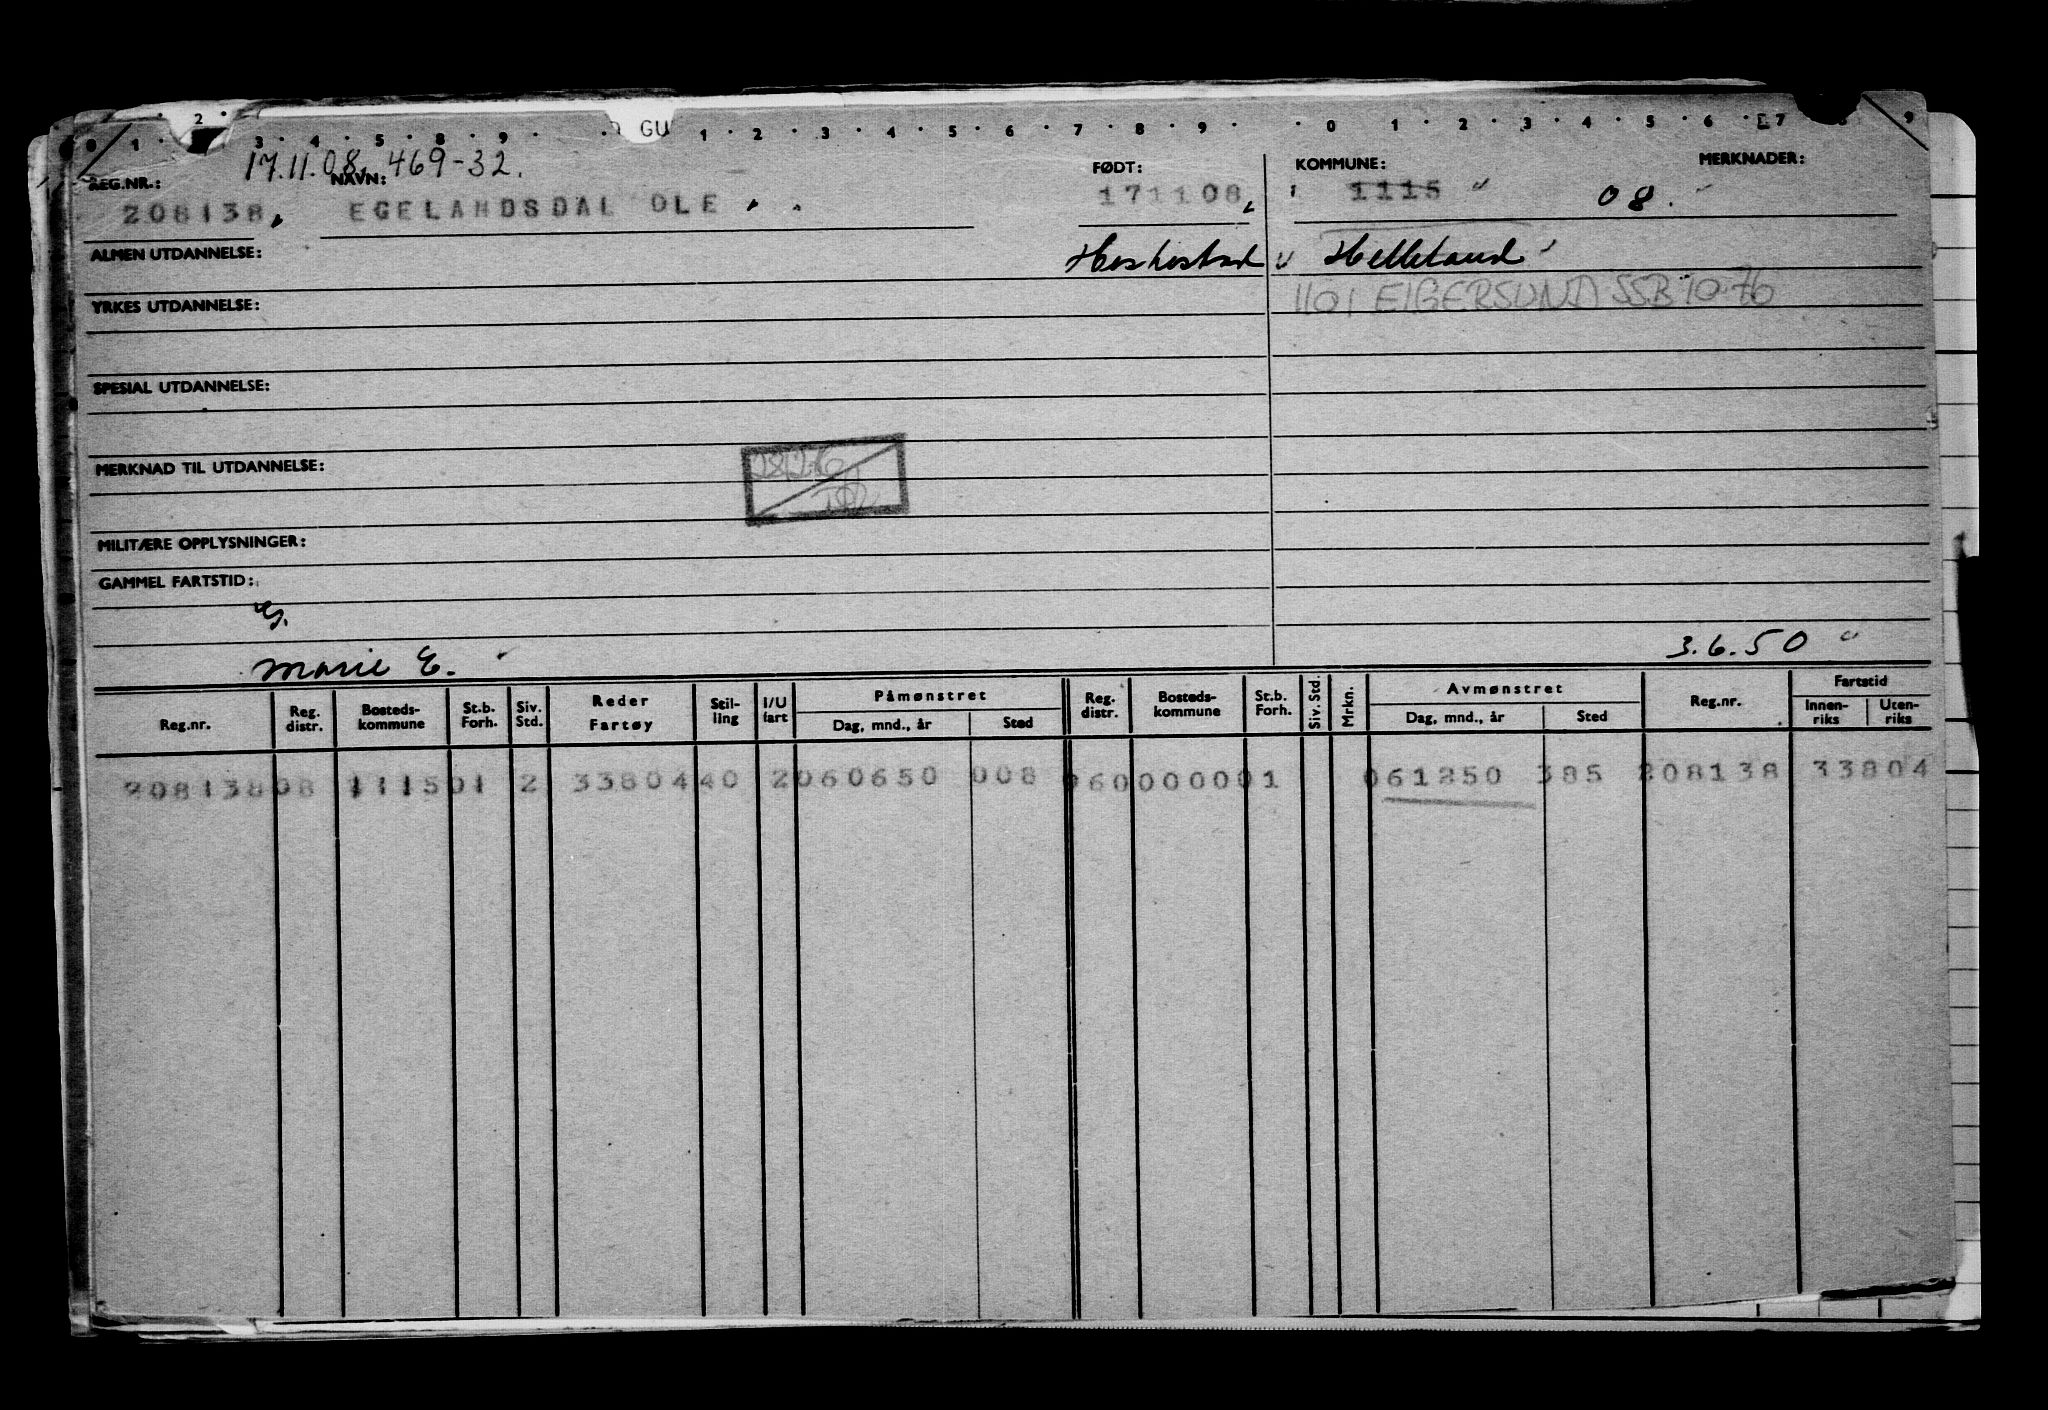 0 1 2 3 4 5 8 9 GU 1 2 3 4 5 6 7 8 9 0 1 2 3 4 5 6 7 8 9
17.11.08, 469-32.
REG.NR.: NAVN: FØDT: KOMMUNE: MERKNADER:
208138, EGELANDSDAL OLE 171108 1115 08.
ALMEN UTDANNELSE: Heskestad Helleland
YRKES UTDANNELSE: 1101 EIGERSUND SSB 10.76
SPESIAL UTDANNELSE:
MERKNAD TIL UTDANNELSE:
MILITÆRE OPPLYSNINGER:
GAMMEL FARTSTID:
G.
Marie E. 3.6.50
Reg.nr. Reg. distr. Bosteds- kommune St.b. Forh. Siv. Std. Reder Fartøy Stil- ling I/U fart Påmønstret Dag, mnd., år Sted Reg. distr. Bosteds- kommune St.b. Forh. Siv. Std. Mrkn. Avmønstret Dag, mnd., år Sted Reg.nr. Fartstid Innen- riks Uten- riks
208138 08 1115 01 2 33804 40 2 060650 008 960 0000 01 061250 385 208138 33804